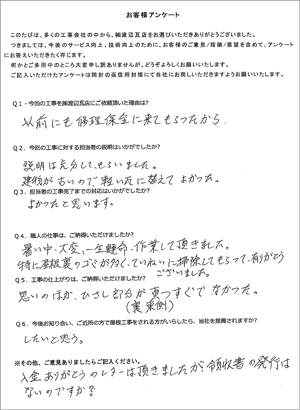 お客様アンケート
このたびは、多くの工事会社の中から、㈱渡辺瓦店をお選びいただきありがとうございました。
つきましては、今後のサービス向上、技術向上のために、お客様のご意見/指摘/要望を含めて、アンケート
にお答えいただきたく存じます。
何かとご多用中のところ大変申し訳ありませんが、どうぞよろしくお願いいたします。
ご記入いただけたアンケートは同封の返信用封筒にて当社にお戻しいただきますようお願いいたします。
Q1・今回の工事を㈱渡辺瓦店にご依頼頂いた理由は?
以前にも修理保全に来てもらつたから.
Q2．今回の工事に対する担当者の説明はいかがでしたか?
説明は充分してもらいました。
建物が古いので、軽い瓦に替えてよかった。
Q3．担当者の工事完了までの対応はいかがでしたか?
よかったと思います。
Q4．職人の仕事は、ご納得いただけましたか?
暑い中、大変、一生懸命、作業して頂きました。
特に屋根裏のゴミが多く、ていねいに掃除してもらって、有がとう
ございました。
Q5．工事の仕上がりは、ご納得いただけましたか?
思いのほか、ひさし部分が真っすぐでなかった。
(裏東側)
Q6．今後お知り合い、ご近所の方で屋根工事をされる方がいらしたら、当社を推薦されますか?
したいと思う。
※その他、ご意見ありましたらご記入ください。
入金ありがとうのレターは頂きましたが、領収書の発行は
ないのですか?